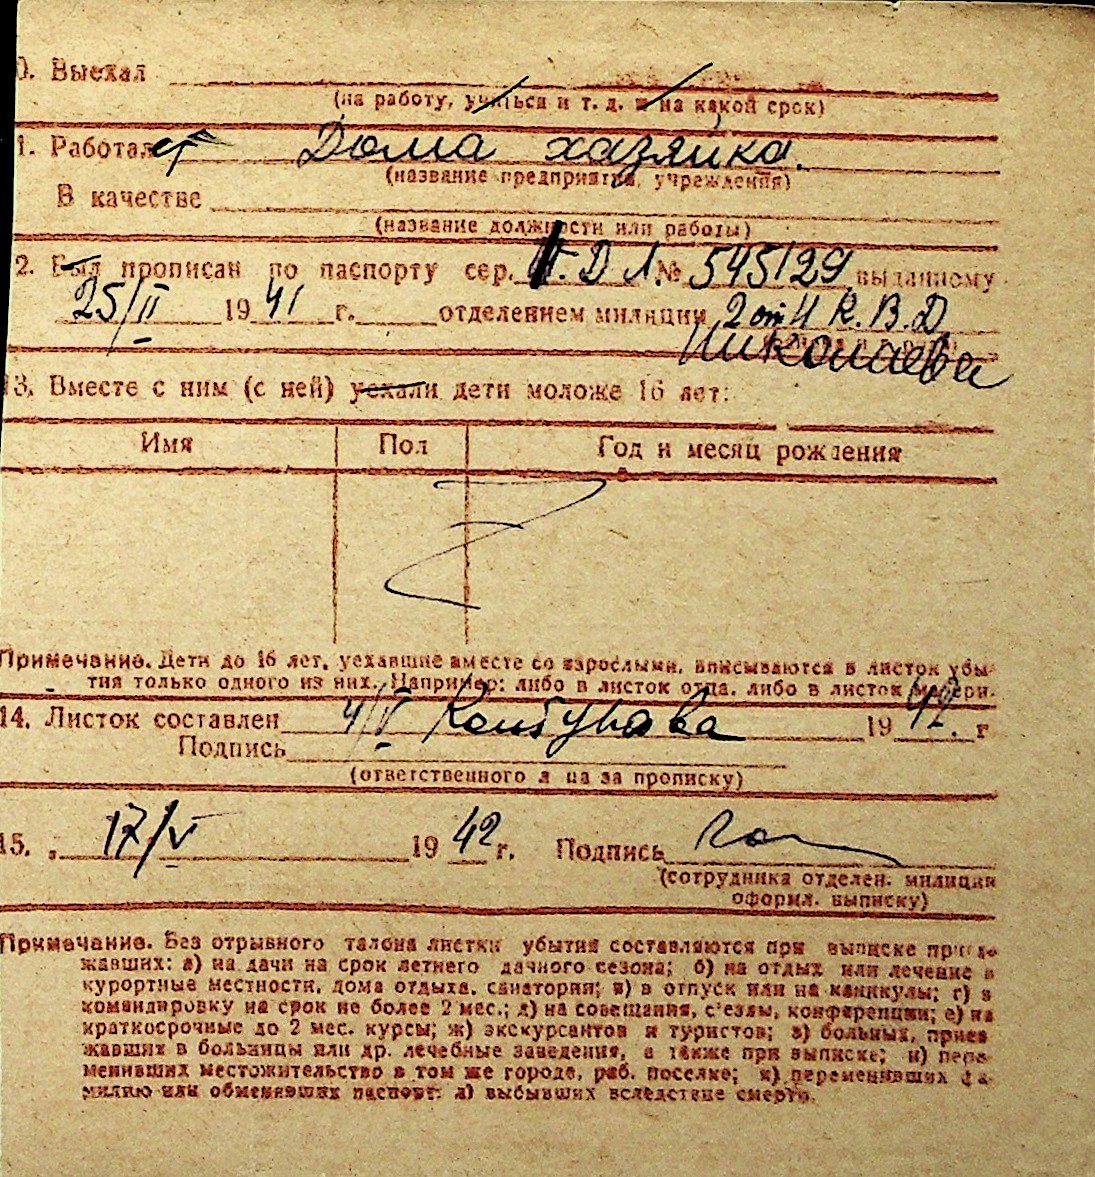 0. Выехал
(на работу, учиться и т. д. и на какой срок)
1. Работает Дома хазяйка.
(название предприятия, учреждения)
В качестве
(название должности или работы)
2. Был прописан по паспорту сер. Д Л. № 545129 выданному
25/II 1941 г. отделением милиции 2 от Н К. В. Д
Николаева
13. Вместе с ним (с ней) уехали дети моложе 16 лет:
Имя Пол Год и месяц рождения
Примечание. Дети до 16 лет, уехавшие вместе со взрослыми, вписываются в листок убы-
тия только одного из них. Например: либо в листок отца, либо в листок матери.
14. Листок составлен 4/V 1942. г
Подпись
(ответственного лица за прописку)
15. 17/V 1942 г. Подпись
(сотрудника отделен. милиции
оформл. выписку)
Примечание. Без отрывного талона листки убытия составляются при выписке приез-
жавших: а) на дачи на срок летнего дачного сезона; б) на отдых или лечение в
курортные местности, дома отдыха, санатории; в) в отпуск или на каникулы; г) в
командировку на срок не более 2 мес.; д) на совещания, с'езды, конференции; е) на
краткосрочные до 2 мес. курсы; ж) экскурсантов и туристов; з) больных, приез
жавших в больницы или др. лечебные заведения, а также при выписке; и) пере-
менивших местожительство в том же городе, раб. поселке; к) переменивших фа-
милию или обменявших паспорт; л) выбывших вследствие смерти.